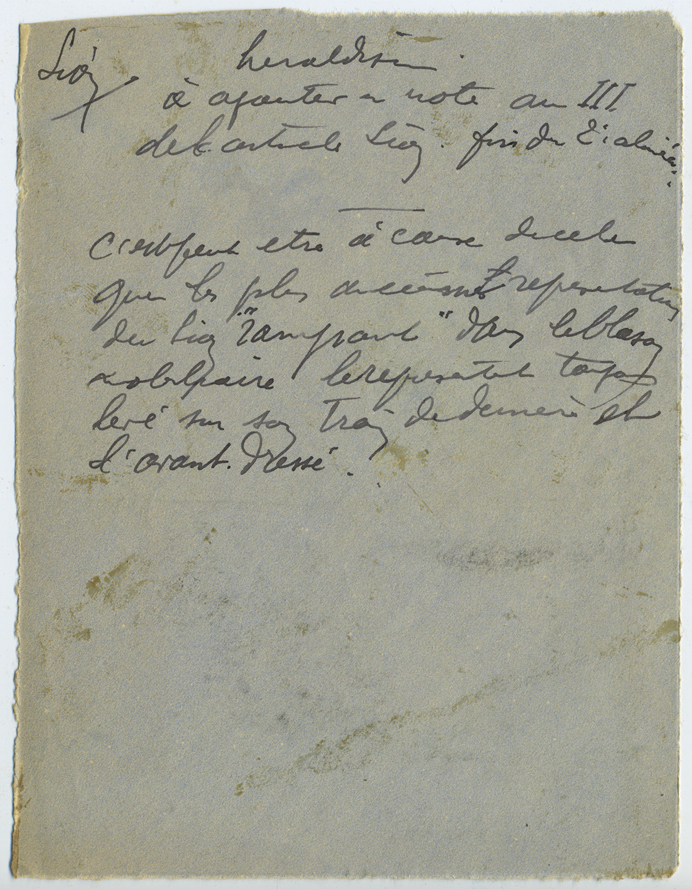 Lion. heraldisme.
à ajouter en note au III
de l'article Lion. fin du 2e alinéa.
C'est peut etre à cause de cela
que les plus anciennes representations
du lion "rampant" dans le blason
le representent
levé sur son train de derriere et
l'avant dressé.